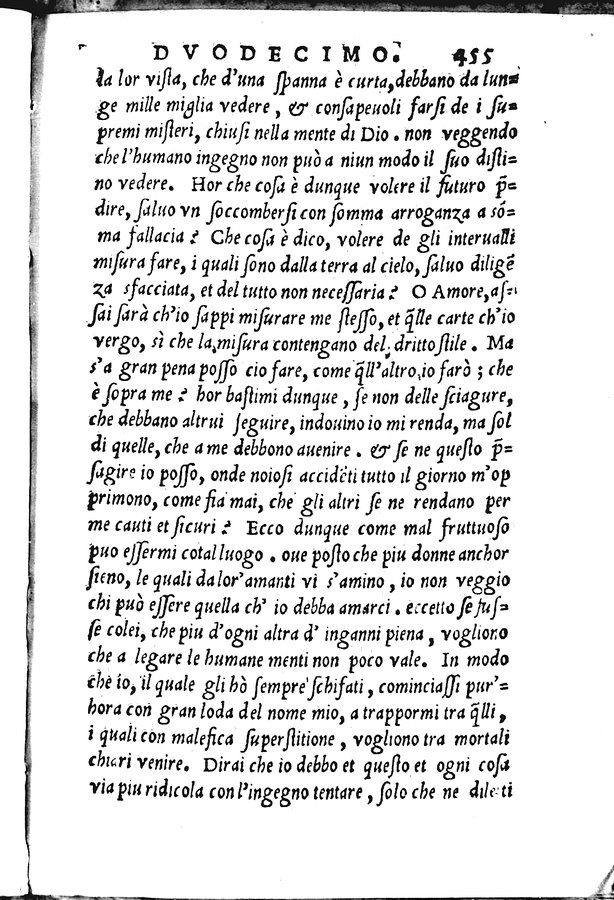 DVODECIMO. 455
la lor viſta, che d'una ſpanna è curta, debbano da lun-
ge mille miglia vedere, & conſapeuoli farſi de i ſu-
premi miſteri, chiuſi nella mente di Dio. non veggendo
che l'humano ingegno non può a niun modo il ſuo diſti-
no vedere. Hor che coſa è dunque volere il futuro p̄-
dire, ſaluo vn ſoccomberſi con ſomma arroganza a sō-
ma fallacia? Che coſa è dico, volere de gli interualli
miſura fare, i quali ſono dalla terra al cielo, ſaluo diligē
za sfacciata, et del tutto non neceſſaria? O Amore, aſ-
ſai ſarà ch'io ſappi miſurare me ſteſſo, et q̄lle carte ch'io
vergo, sì che la miſura contengano del dritto ſtile. Ma
s'a gran pena poſſo cio fare, come q̄ll'altro io farò; che
è ſopra me? hor baſtimi dunque, ſe non delle ſciagure,
che debbano altrui ſeguire, indouino io mi renda, ma ſol
di quelle, che a me debbono auenire. & ſe ne queſto p̄-
ſagire io poſſo, onde noioſi accidēti tutto il giorno m'op
primono, come fia mai, che gli altri ſe ne rendano per
me cauti et ſicuri? Ecco dunque come mal fruttuoſo
puo eſſermi cotal luogo. oue poſto che piu donne anchor
ſieno, le quali da lor'amanti vi s'amino, io non veggio
chi può eſſere quella ch'io debba amarci. eccetto ſe fuſ-
ſe colei, che piu d'ogni altra d'inganni piena, vogliono
che a legare le humane menti non poco vale. In modo
che io, il quale gli hò ſempre ſchifati, cominciaſſi pur'-
hora con gran loda del nome mio, a trappormi tra q̄lli,
i quali con malefica ſuperſtitione, vogliono tra mortali
chiari venire. Dirai che io debbo et queſto et ogni coſa
via piu ridicola con l'ingegno tentare, ſolo che ne diletti